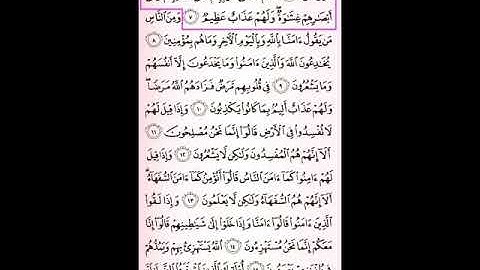 أَبْصَٰرِهِمْ غِشَٰوَةٌ ۖ وَلَهُمْ عَذَابٌ عَظِيمٌ ٧ وَمِنَ ٱلنَّاسِ
مَن يَقُولُ ءَامَنَّا بِٱللَّهِ وَبِٱلْيَوْمِ ٱلْءَاخِرِ وَمَا هُم بِمُؤْمِنِينَ ٨
يُخَٰدِعُونَ ٱللَّهَ وَٱلَّذِينَ ءَامَنُوا۟ وَمَا يَخْدَعُونَ إِلَّآ أَنفُسَهُمْ
وَمَا يَشْعُرُونَ ٩ فِى قُلُوبِهِم مَّرَضٌ فَزَادَهُمُ ٱللَّهُ مَرَضًا ۖ
وَلَهُمْ عَذَابٌ أَلِيمٌۢ بِمَا كَانُوا۟ يَكْذِبُونَ ١٠ وَإِذَا قِيلَ لَهُمْ
لَا تُفْسِدُوا۟ فِى ٱلْأَرْضِ قَالُوٓا۟ إِنَّمَا نَحْنُ مُصْلِحُونَ ١١
أَلَآ إِنَّهُمْ هُمُ ٱلْمُفْسِدُونَ وَلَٰكِن لَّا يَشْعُرُونَ ١٢ وَإِذَا قِيلَ
لَهُمْ ءَامِنُوا۟ كَمَآ ءَامَنَ ٱلنَّاسُ قَالُوٓا۟ أَنُؤْمِنُ كَمَآ ءَامَنَ ٱلسُّفَهَآءُ ۗ
أَلَآ إِنَّهُمْ هُمُ ٱلسُّفَهَآءُ وَلَٰكِن لَّا يَعْلَمُونَ ١٣ وَإِذَا لَقُوا۟
ٱلَّذِينَ ءَامَنُوا۟ قَالُوٓا۟ ءَامَنَّا وَإِذَا خَلَوْا۟ إِلَىٰ شَيَٰطِينِهِمْ قَالُوٓا۟ إِنَّا
مَعَكُمْ إِنَّمَا نَحْنُ مُسْتَهْزِءُونَ ١٤ ٱللَّهُ يَسْتَهْزِئُ بِهِمْ وَيَمُدُّهُمْ